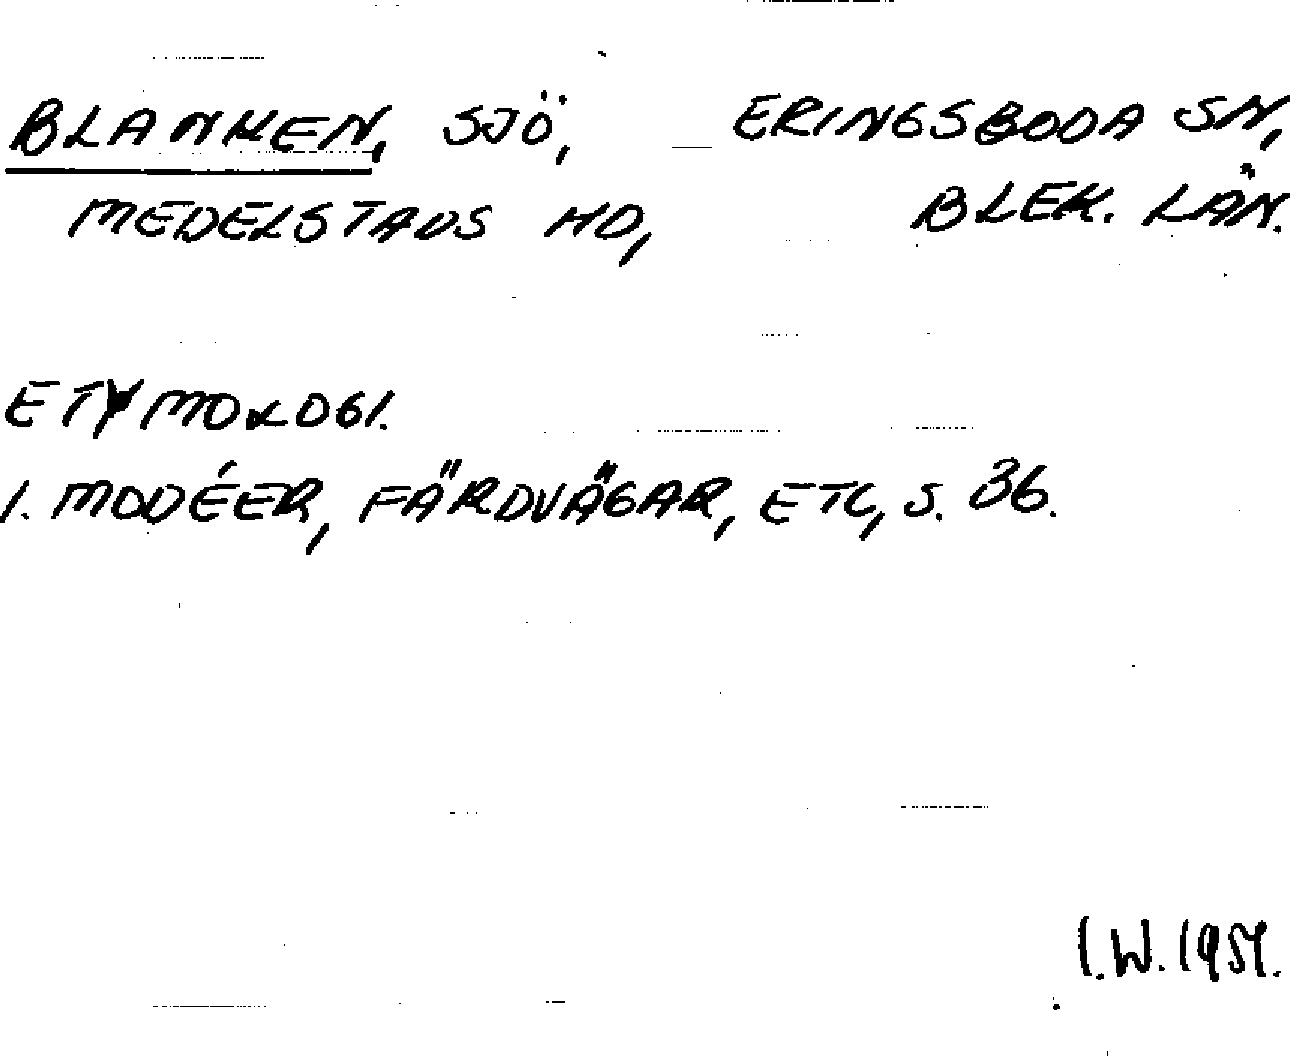 BLANKEN, SJÖ, ERINGSBODA SN,
MEDELSTADS HD, BLEK. LÄN.
ETYMOLOGI.
I. MODÉER, FÄRDVÄGAR, ETC, S. 36.
I.W.